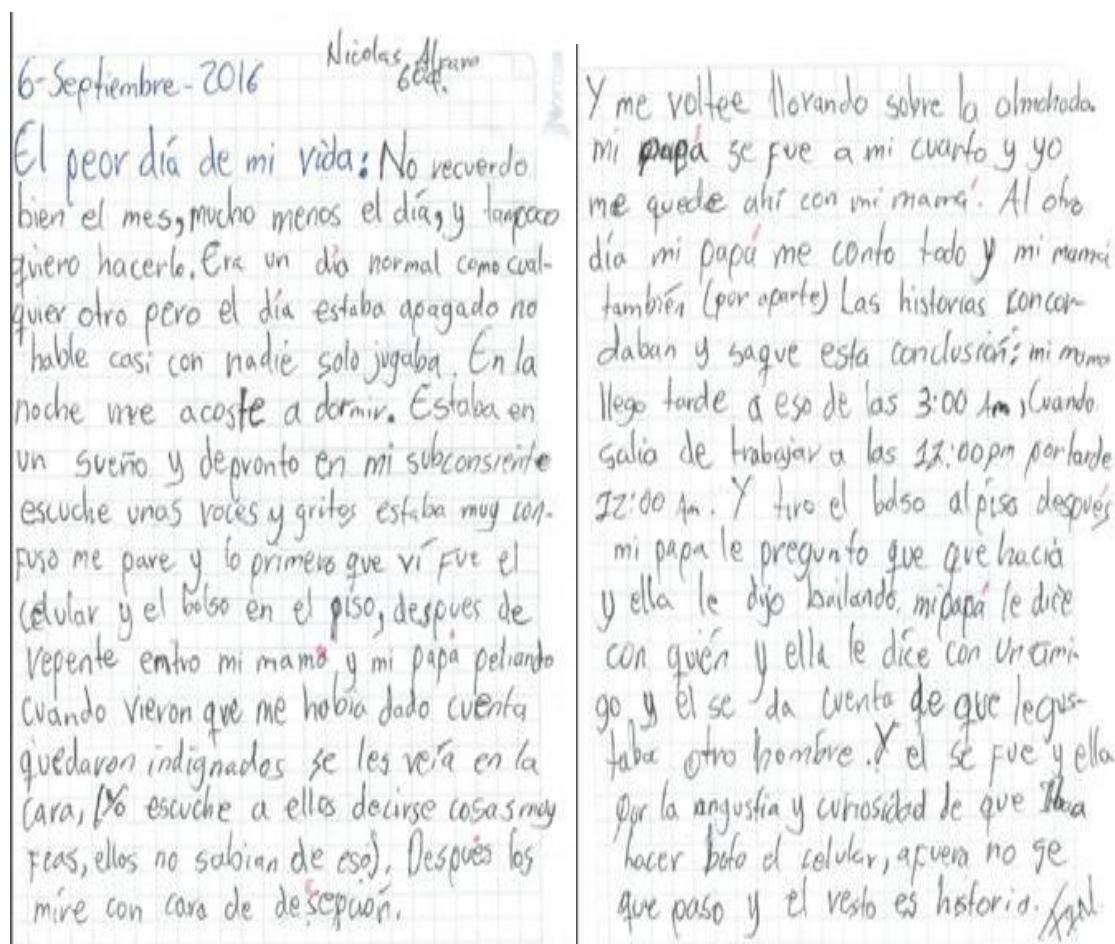 Nicolas Alfaro
6-Septiembre-2016
El peor día de mi vida: No recuerdo
bien el mes, mucho menos el día, y tampoco
quiero hacerlo. Era un día normal como cual-
quier otro pero el día estaba apagado no
hable casi con nadie solo jugaba. En la
noche me acoste a dormir. Estaba en
un sueño y depronto en mi subconsiente
escuche unas voces y gritos estaba muy con-
fuso me pare y lo primero que ví fue el
celular y el bolso en el piso, despues de
repente entro mi mamá y mi papá peliando
cuando vieron que me habia dado cuenta
quedaron indignados se les veía en la
cara, (Yo escuche a ellos decirse cosas muy
feas, ellos no sabian de eso). Después los
mire con cara de desepción.
Y me voltee llorando sobre la almohada
mi papá se fue a mi cuarto y yo
me quede ahí con mi mamá. Al otro
día mi papá me conto todo y mi mamá
también (por aparte) Las historias concor-
daban y saque esta conclusión: mi mama
llego tarde a eso de las 3:00 Am, Cuando
salia de trabajar a las 12:00pm por tarde
12:00 Am. Y tiro el bolso al piso después
mi papa le pregunto que que hacia
y ella le dijo bailando, mi papá le dice
con quién y ella le dice con un ami-
go y el se da cuenta de que le gus-
taba otro hombre. Y el se fue y ella
por la angustia y curiosidad de que iba
hacer boto el celular, afuera no se
que paso y el resto es historia.